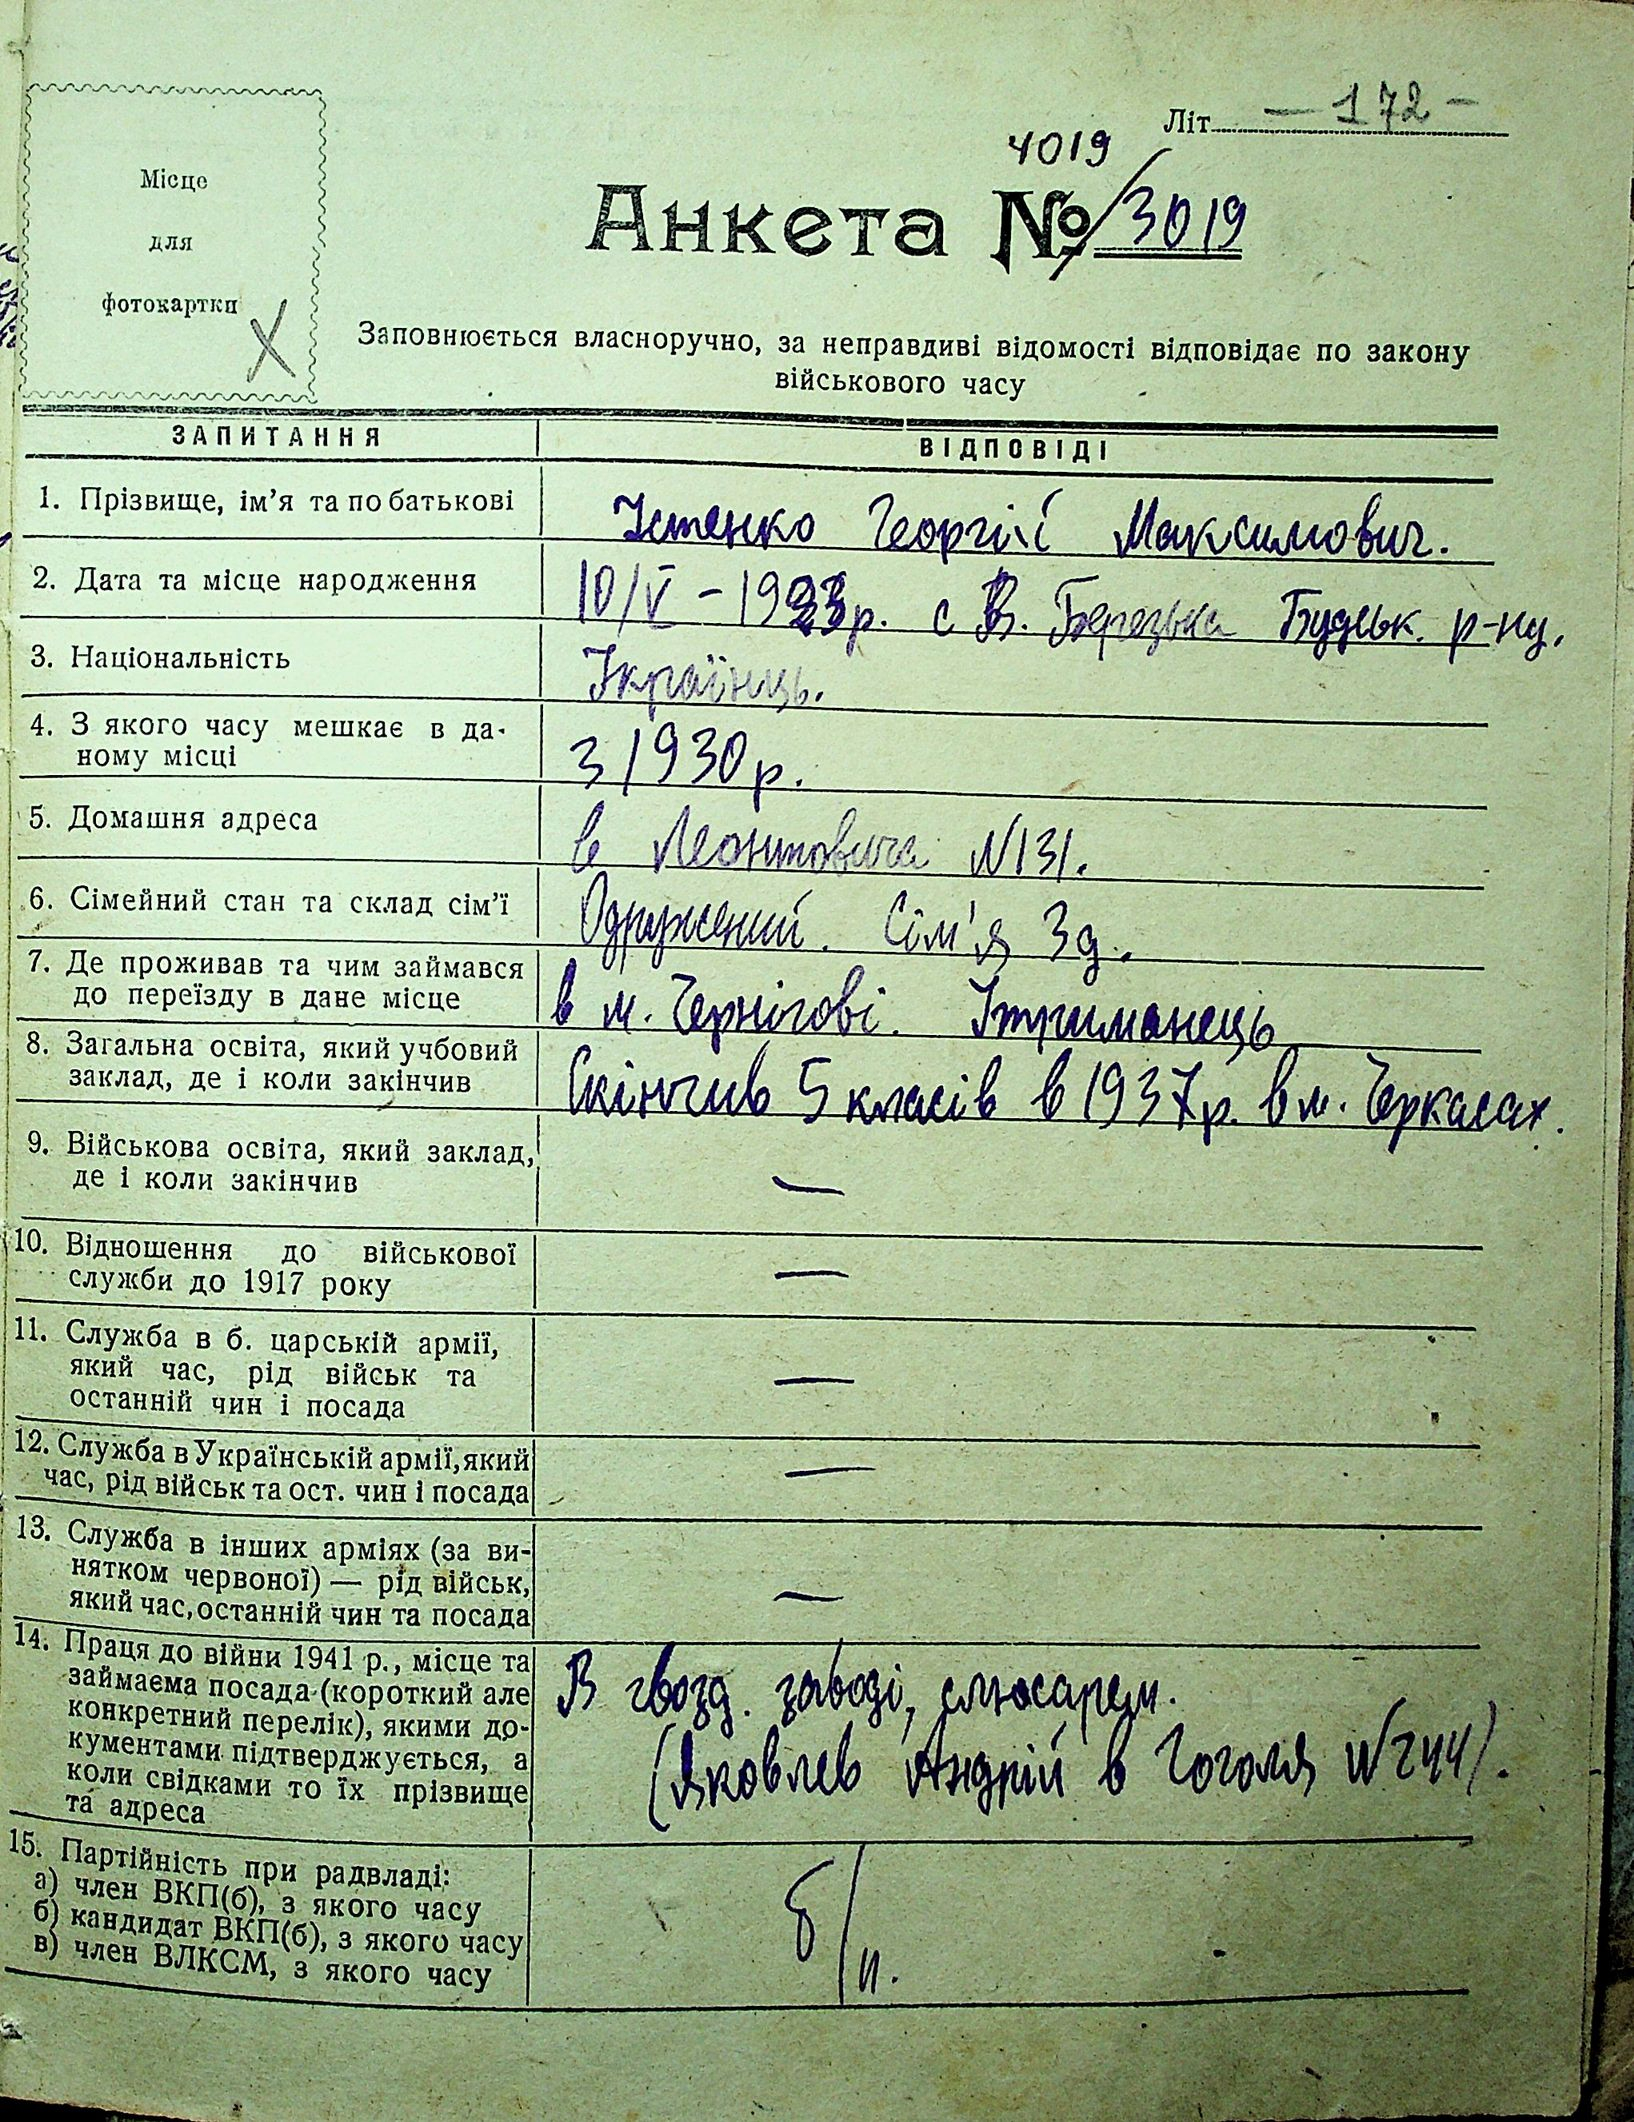 Літ. — 172 —
4019
Анкета № 3019
Місце
для
фотокартки
Заповнюється власноручно, за неправдиві відомості відповідає по закону
військового часу
ЗАПИТАННЯ
ВІДПОВІДІ
1. Прізвище, ім'я та по батькові
Устенко Георгій Максимович.
2. Дата та місце народження
10/V – 1923р. с В. Березька Будськ. р-ну.
3. Національність
Українець.
4. З якого часу мешкає в да-
ному місці
З 1930 р.
5. Домашня адреса
в Леонтовича N131.
6. Сімейний стан та склад сім'ї
Одружений. Сім'я 3д.
7. Де проживав та чим займався
до переїзду в дане місце
в м. Чернігові. Утриманець
8. Загальна освіта, який учбовий
заклад, де і коли закінчив
Скінчив 5 класів в 1937р. в м. Черкасах.
9. Військова освіта, який заклад,
де і коли закінчив
—
10. Відношення до військової
служби до 1917 року
—
11. Служба в б. царській армії,
який час, рід військ та
останній чин і посада
—
12. Служба в Українській армії, який
час, рід військ та ост. чин і посада
—
13. Служба в інших арміях (за ви-
нятком червоної) — рід військ,
який час, останній чин та посада
—
14. Праця до війни 1941 р., місце та
займаема посада (короткий але
конкретний перелік), якими до-
кументами підтверджується, а
коли свідками то їх прізвище
та адреса
В гвозд. заводі, слюсарем.
(Яковлев Андрій в Гоголя N244).
15. Партійність при радвладі:
а) член ВКП(б), з якого часу
б) кандидат ВКП(б), з якого часу
в) член ВЛКСМ, з якого часу
б/п.